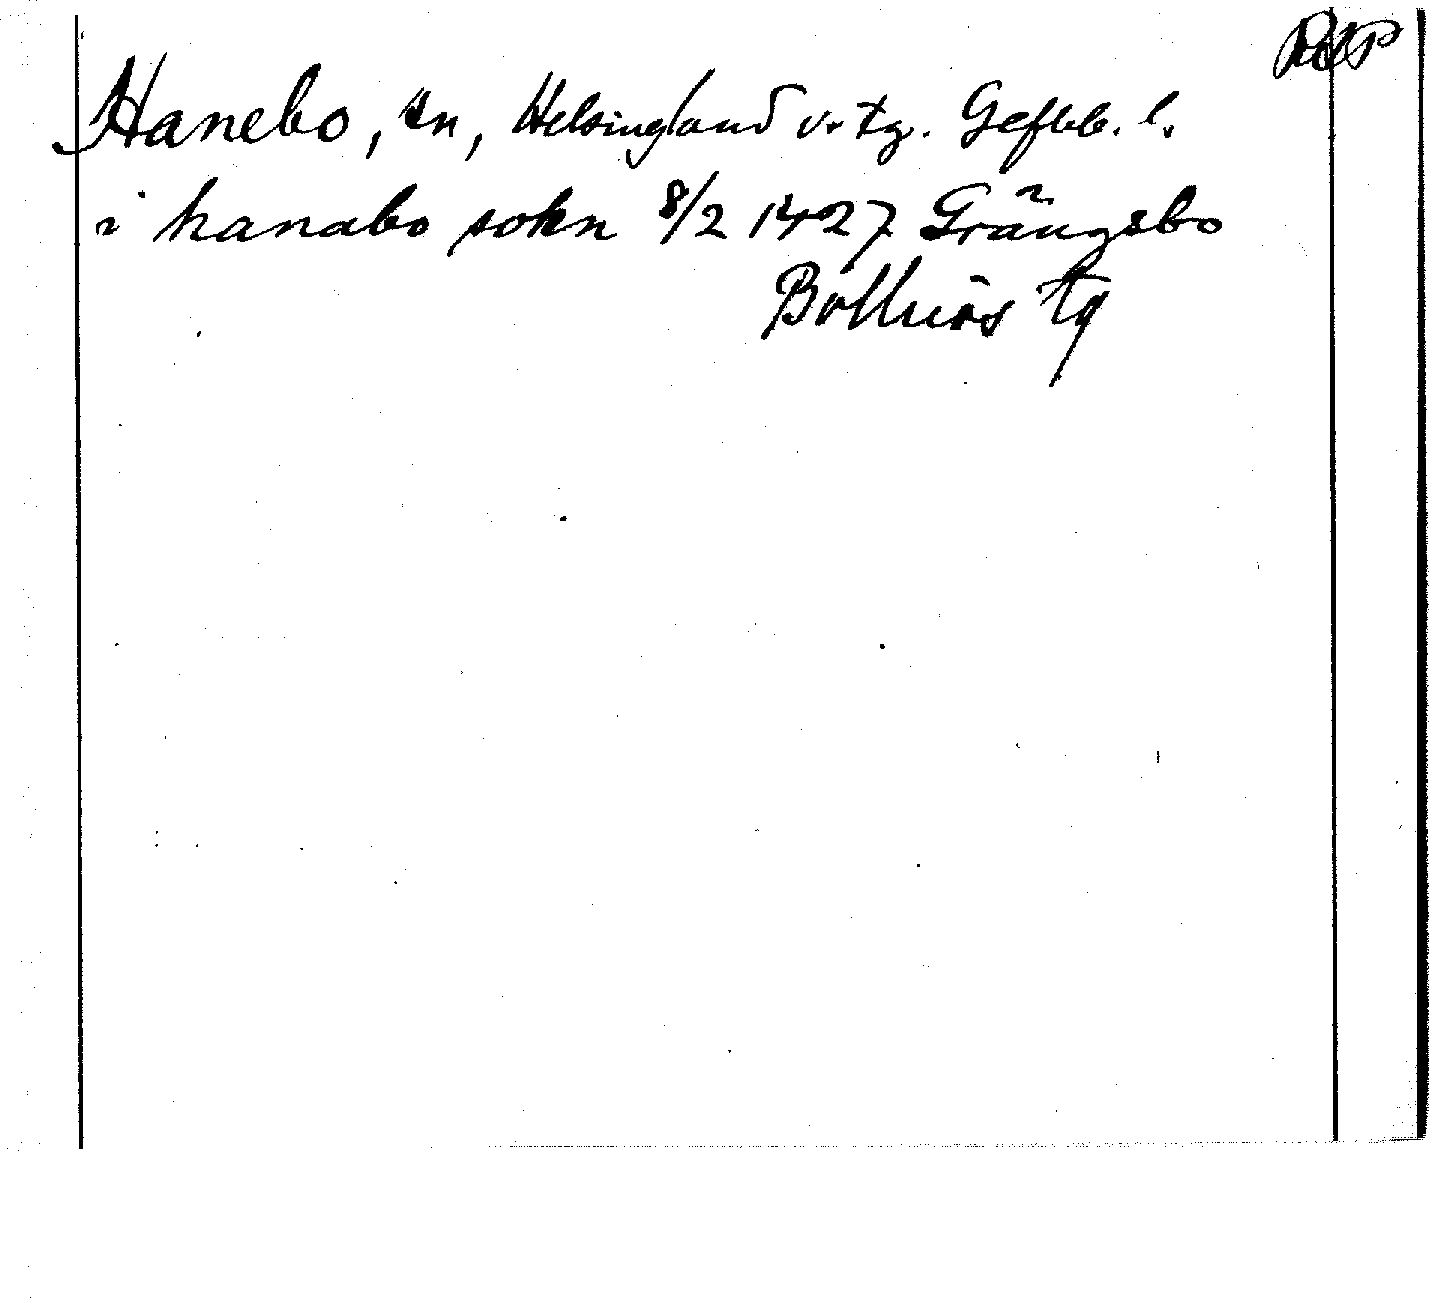 Hanebo, sn, Helsingland v. tg. Gefleb. l.
i hanabo sokn 8/2 1427 Grängsbo
Bollnäs tg